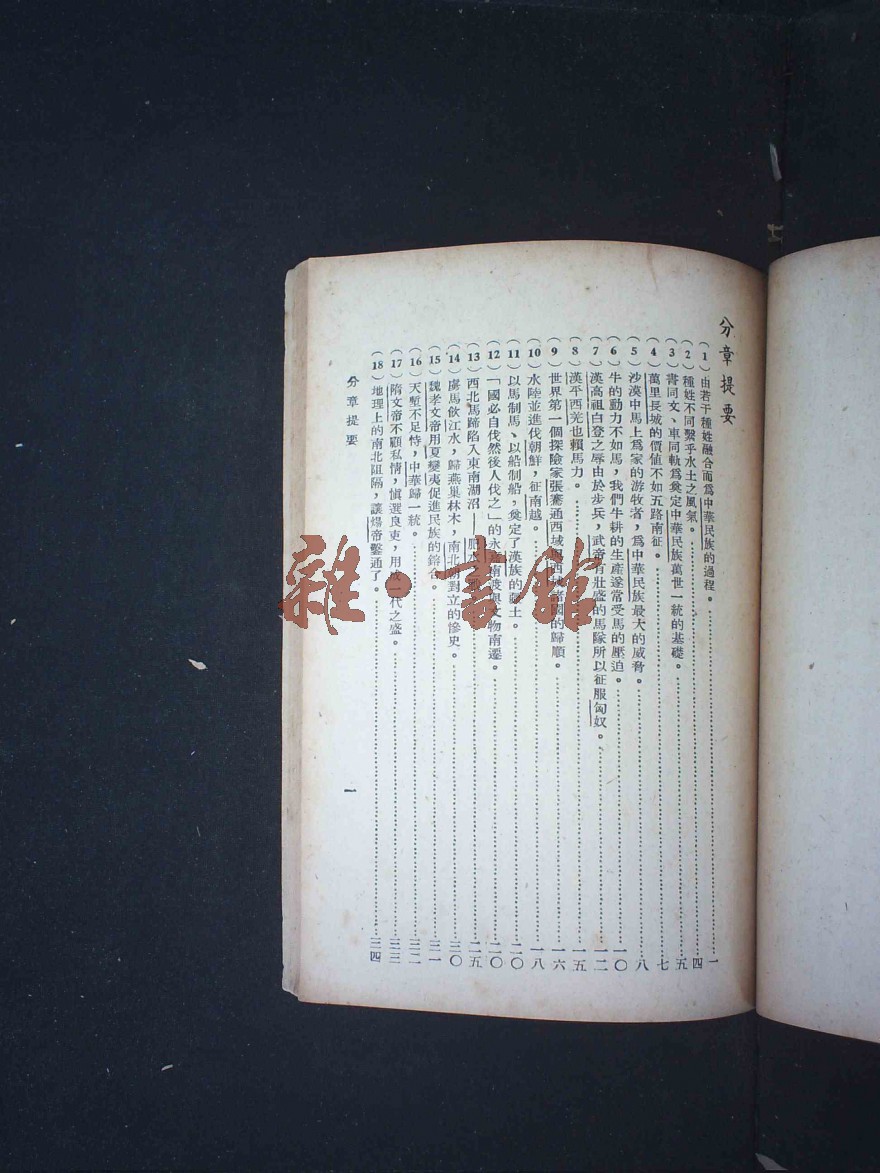 分章提要
（1）由若干種姓融合而爲中華民族的過程。……一
（2）種姓不同繫乎水土之風氣。……四
（3）書同文、車同軌爲奠定中華民族萬世一統的基礎。……五
（4）萬里長城的價值不如五路南征。……七
（5）沙漠中馬上爲家的游牧者，爲中華民族最大的威脅。……八
（6）牛的動力不如馬，我們牛耕的生產遂常受馬的壓迫。……一〇
（7）漢高祖白登之辱由於步兵，武帝有壯盛的馬隊所以征服匈奴。……一二
（8）漢平西羌也賴馬力。……一五
（9）世界第一個探險家張騫通西域與西域諸國的歸順。……一六
（10）水陸並進伐朝鮮，征南越。……一八
（11）以馬制馬、以船制船，奠定了漢族的疆土。……二〇
（12）「國必自伐然後人伐之」的永嘉南渡與文物南遷。……二〇
（13）西北馬蹄陷入東南湖沼——肥水之……二五
（14）虜馬飲江水，歸燕巢林木，南北朝對立的慘史。……三〇
（15）魏孝文帝用夏變夷促進民族的鎔合。……三一
（16）天塹不足恃，中華歸一統。……三二
（17）隋文帝不顧私情，愼選良吏，用成一代之盛。……三三
（18）地理上的南北阻隔，讓煬帝鑿通了。……三四
分章提要
一
雜·書館